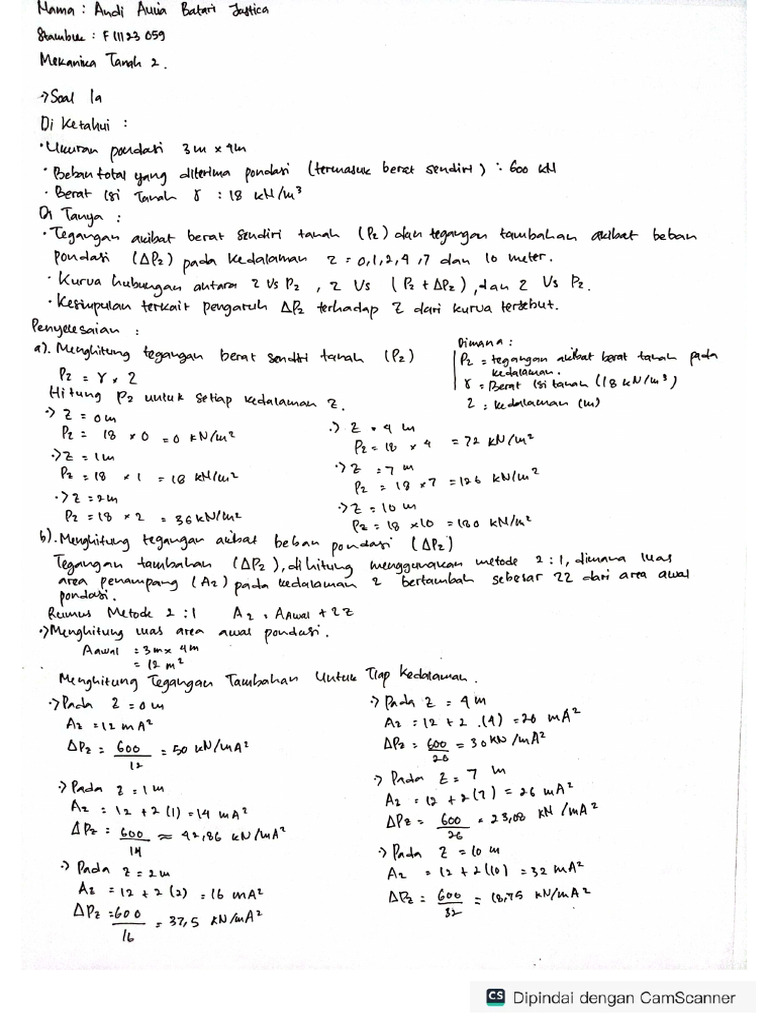 Nama : Andi Aulia Batari Jastica
Stambuk : F 111 23 059
Mekanika Tanah 2.
-> Soal 1a
Di Ketahui :
• Ukuran pondasi 3m x 4m
• Beban total yang diterima pondasi (termasuk berat sendiri) : 600 kN
• Berat isi Tanah γ : 18 kN/m³
Di Tanya :
• Tegangan akibat berat sendiri tanah (Pz) dan tegangan tambahan akibat beban
pondasi (ΔPz) pada kedalaman z = 0,1,2,4,7 dan 10 meter.
• Kurva hubungan antara z Vs Pz, z Vs (Pz + ΔPz), dan z Vs Pz.
• Kesimpulan terkait pengaruh ΔPz terhadap z dari kurva tersebut.
Penyelesaian :
a). Menghitung tegangan berat sendiri tanah (Pz)
Pz = γ x z
Dimana :
Pz = tegangan akibat berat tanah pada
kedalaman.
γ = Berat isi tanah (18 kN/m³)
z : kedalaman (m)
Hitung Pz untuk setiap kedalaman z.
-> z = 0 m
Pz = 18 x 0 = 0 kN/m²
-> z = 1m
Pz = 18 x 1 = 18 kN/m²
-> z = 2m
Pz = 18 x 2 = 36 kN/m²
-> z = 4 m
Pz = 18 x 4 = 72 kN/m²
-> z = 7 m
Pz = 18 x 7 = 126 kN/m²
-> z = 10 m
Pz = 18 x 10 = 180 kN/m²
b). Menghitung tegangan akibat beban pondasi (ΔPz)
Tegangan tambahan (ΔPz), di hitung menggunakan metode 2 : 1, dimana luas
area penampang (Az) pada kedalaman z bertambah sebesar 2z dari area awal
pondasi.
Rumus Metode 2 : 1 Az = Aawal + 2z
-> Menghitung luas area awal pondasi.
Aawal = 3m x 4m
= 12 m²
Menghitung Tegangan Tambahan Untuk Tiap Kedalaman.
-> Pada z = 0 m
Az = 12 mA²
ΔPz = 600/12 = 50 kN/mA²
-> Pada z = 1 m
Az = 12 + 2(1) = 14 mA²
ΔPz = 600/14 ≈ 42,86 kN/mA²
-> Pada z = 2m
Az = 12 + 2(2) = 16 mA²
ΔPz = 600/16 = 37,5 kN/mA²
-> Pada z = 4 m
Az = 12 + 2 .(4) = 20 mA²
ΔPz = 600/20 = 30 kN/mA²
-> Pada z = 7 m
Az = 12 + 2(7) = 26 mA²
ΔPz = 600/26 = 23,08 kN/mA²
-> Pada z = 10 m
Az = 12 + 2(10) = 32 mA²
ΔPz = 600/32 = 18,75 kN/mA²
CS Dipindai dengan CamScanner